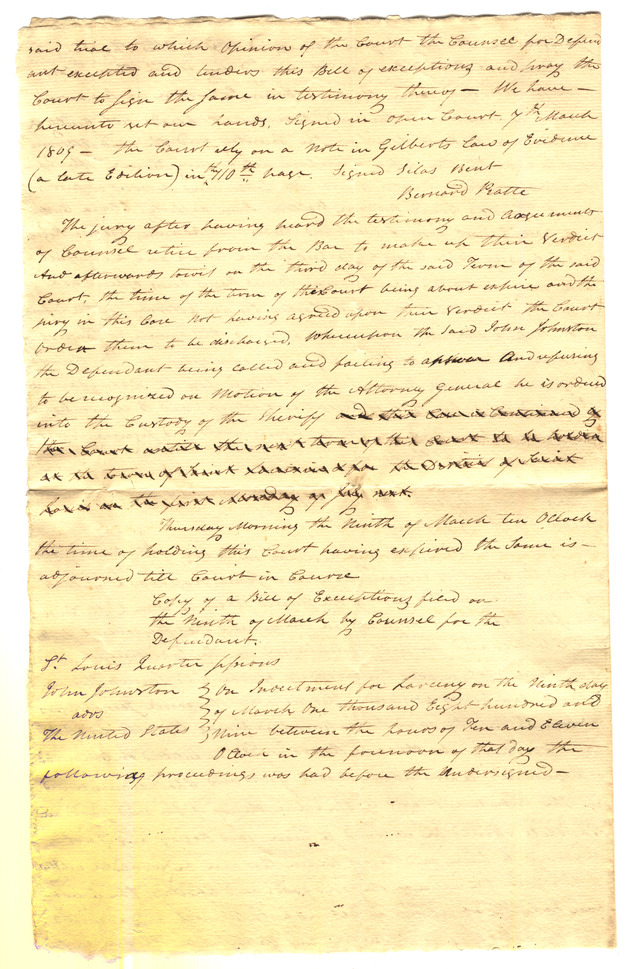 said trial to which Opinion of the Court the Counsel for Defend
ant excepted and tenders this Bill of exceptions and pray the
Court to Sign the same in testimony thereof — We have —
hereunto set our hands, Signed in open Court 7th March
1809 — the Court rely on a Note in Gilberts Law of Evidence
(a late Edition) in the 110th page. Signed Silas Bent
Bernard Pratte
The jury after having heard the testimony and Arguments
of Counsel retire from the Bar to make up their Verdict
And afterwards towit on the third day of the said Term of the said
Court, the time of the term of this Court being about expire and the
jury in this Case not having agreed upon their Verdict the Court
Order them to be discharged. Whereupon the said John Johnston
the Defendant being called and failing to answer And refusing
to be recognized on Motion of the Attorney General he is ordered
into the Custody of the Sheriff and this Case is Continued by
the Court untill the next term of this Court to be holden
at the town of Saint Louis for the District of Saint
Louis on the first Monday of July next.
Thursday Morning the Ninth of March ten OClock
the time of holding this Court having expired the Same is —
adjourned till Court in Course
Copy of a Bill of Exceptions filed on
the Ninth of March by Counsel for the
Defendant.
St Louis Quarter Sessions
John Johnston } On Indictment for Larceny on the Ninth day
advs } of March One thousand Eight hundred and
The United States } Nine between the hours of Ten and Eleven
OClock in the forenoon of that day the
following proceedings was had before the Undersigned —